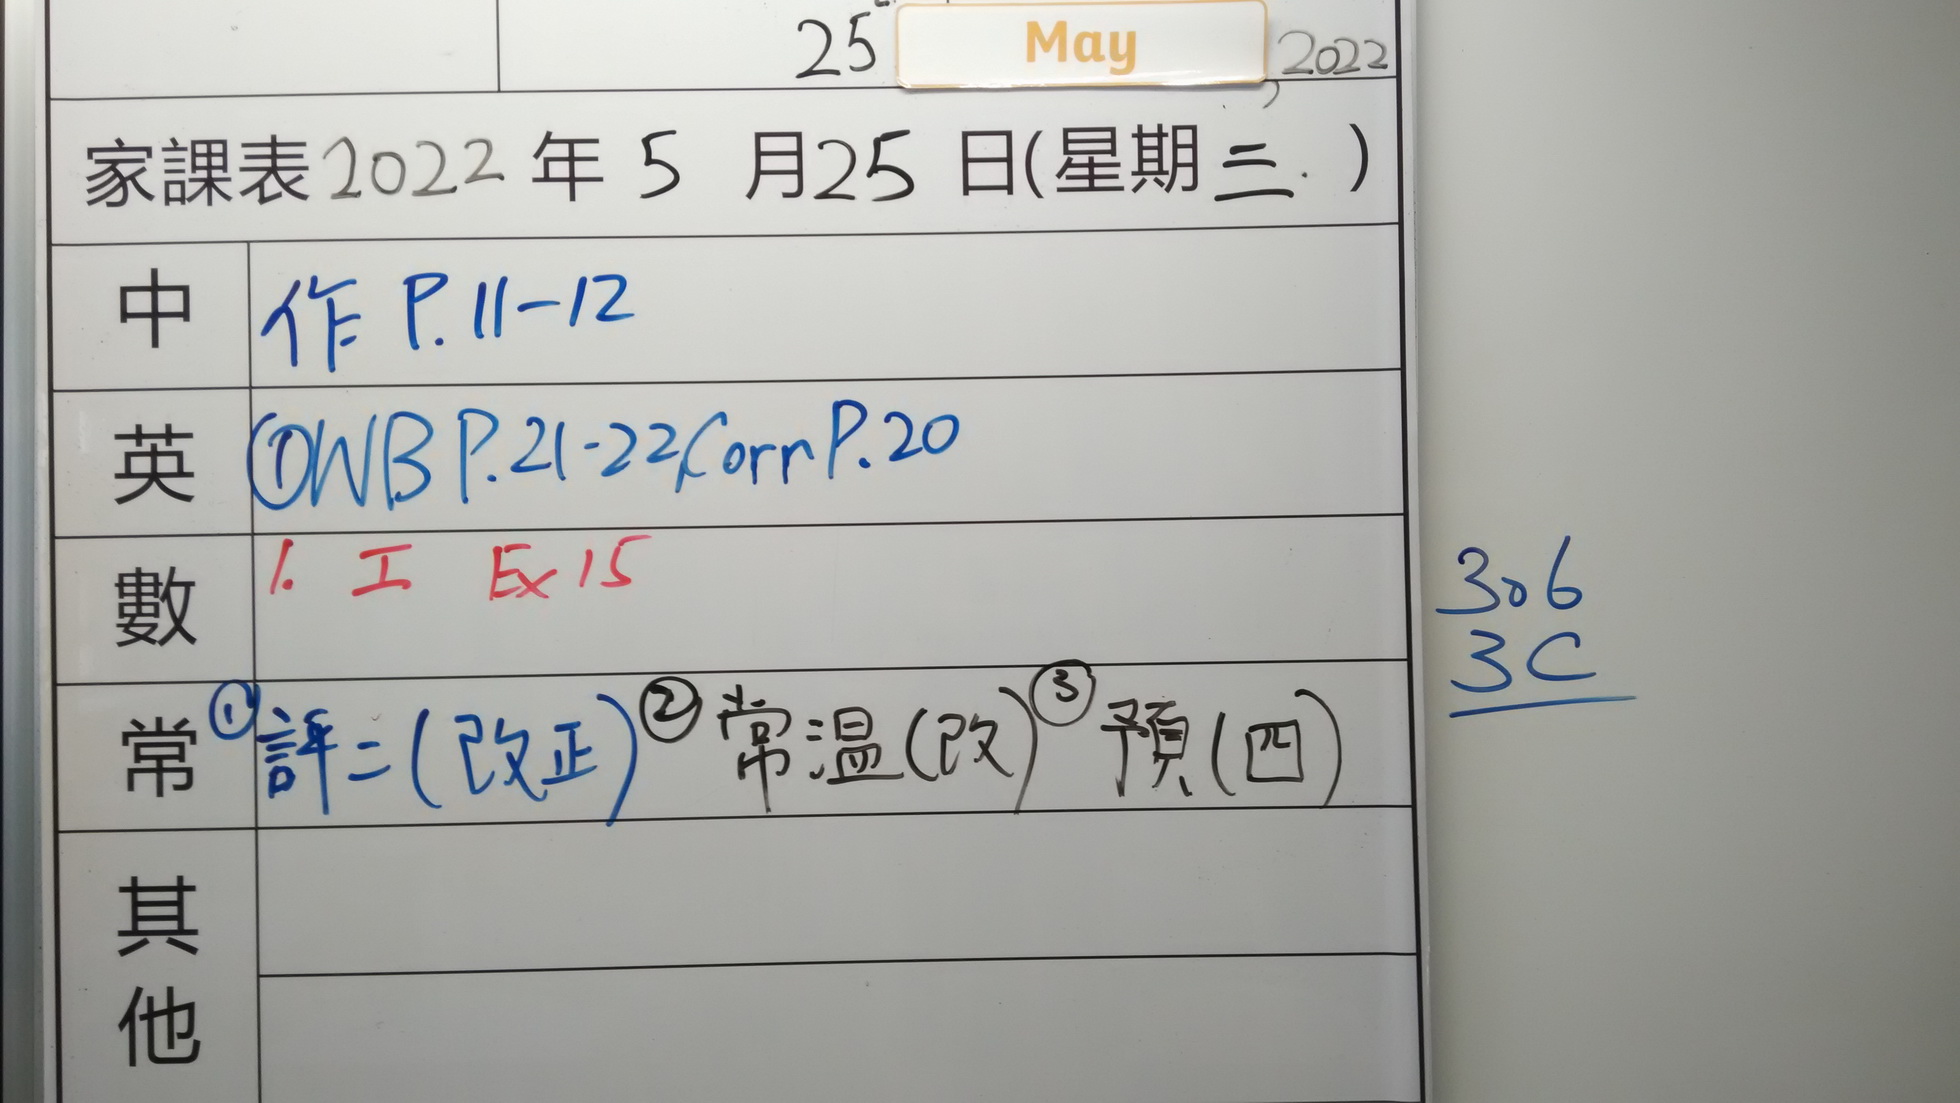 25 May 2022
家課表2022年5月25日(星期三)
中 作 P.11-12
英 ①WB P.21-22, Corr P.20
數 1. 工 Ex 15
常 ①評二(改正) ②常溫(改) ③預(四)
其他
306
3C